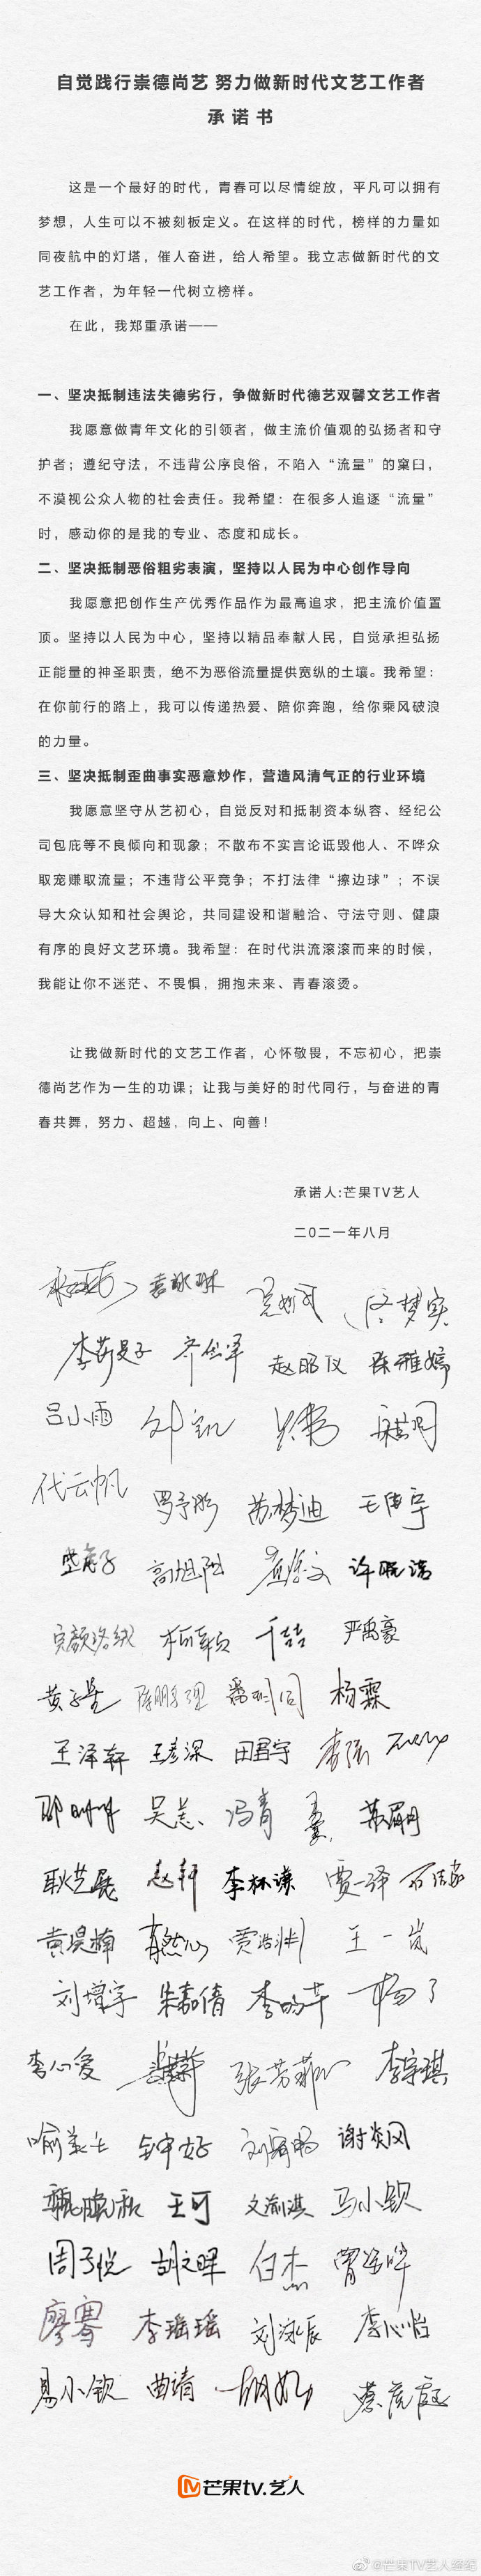 自觉践行崇德尚艺 努力做新时代文艺工作者
承诺书
这是一个最好的时代，青春可以尽情绽放，平凡可以拥有
梦想，人生可以不被刻板定义。在这样的时代，榜样的力量如
同夜航中的灯塔，催人奋进，给人希望。我立志做新时代的文
艺工作者，为年轻一代树立榜样。
在此，我郑重承诺——
一、坚决抵制违法失德劣行，争做新时代德艺双馨文艺工作者
我愿意做青年文化的引领者，做主流价值观的弘扬者和守
护者；遵纪守法，不违背公序良俗，不陷入“流量”的窠臼，
不漠视公众人物的社会责任。我希望：在很多人追逐“流量”
时，感动你的是我的专业、态度和成长。
二、坚决抵制恶俗粗劣表演，坚持以人民为中心创作导向
我愿意把创作生产优秀作品作为最高追求，把主流价值置
顶。坚持以人民为中心，坚持以精品奉献人民，自觉承担弘扬
正能量的神圣职责，绝不为恶俗流量提供宽纵的土壤。我希望：
在你前行的路上，我可以传递热爱、陪你奔跑，给你乘风破浪
的力量。
三、坚决抵制歪曲事实恶意炒作，营造风清气正的行业环境
我愿意坚守从艺初心，自觉反对和抵制资本纵容、经纪公
司包庇等不良倾向和现象；不散布不实言论诋毁他人、不哗众
取宠赚取流量；不违背公平竞争；不打法律“擦边球”；不误
导大众认知和社会舆论，共同建设和谐融洽、守法守则、健康
有序的良好文艺环境。我希望：在时代洪流滚滚而来的时候，
我能让你不迷茫、不畏惧，拥抱未来、青春滚烫。
让我做新时代的文艺工作者，心怀敬畏，不忘初心，把崇
德尚艺作为一生的功课；让我与美好的时代同行，与奋进的青
春共舞，努力、超越，向上、向善！
承诺人:芒果TV艺人
二〇二一年八月
袁咏琳
赵昭仪 陈雅婷
吕小雨
代云帆 罗予彤 苏梦迪 王伟宇
高旭阳 许晓诺
完颜洛绒 千喆 严禹豪
黄子星 陈鹏 杨霖
王泽轩 王彦深 田君宇
吴恙 冯青
耿艺展 赵轩 李林谦 贾一泽
黄昊楠 贾浩 王一岚
刘增宇 朱嘉倩 李昀芊
李心爱 张芳菲 李宇琪
钟好 谢炎风
王可 马小钦
周子悦 胡文晖 白杰
廖骞 李瑶瑶 刘泳辰 李心怡
易小钦 曲靖
芒果tv.艺人
@芒果TV艺人经纪